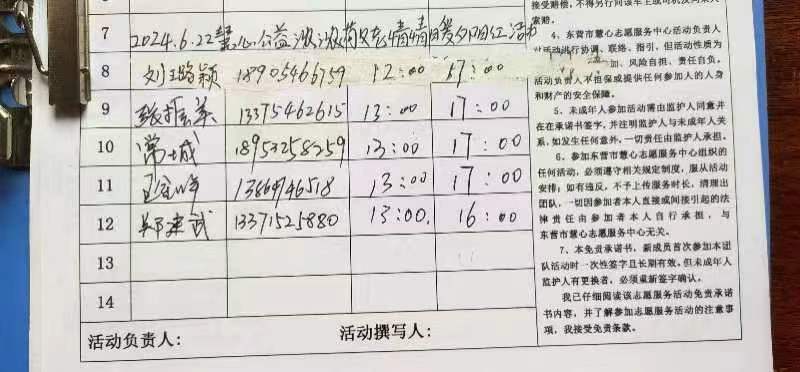 7 2024.6.22慧心公益浓浓敬老情情暖夕阳红活动
8 刘璐颖 18905466759 12:00 17:00
9 13375462615 13:00 17:00
10 常城 18953258259 13:00 17:00
11 13864746518 13:00 17:00
12 郑建武 13371525880 13:00. 16:00
13
14
活动负责人: 活动撰写人:
接受赔偿,不得另行向该车主或司机及
索赔.
4、东营市慧心志愿服务中心活动负责人
进行协调、联络、指引,但活动性质为
加、风险自担、责任自负。
活动负责人不担保或提供任何参加人的人身
和财产的安全保障。
5、未成年人参加活动需由监护人同意并
在在承诺书签字,并注明监护人与未成年人关
系,如发生任何意外,一切责任由监护人承担。
6、参加东营市慧心志愿服务中心组织的
任何活动,必须遵守相关规定制度,服从活动
安排;如有违反,不予上传服务时长,清理出
团队,一切因参加者本人直接或间接引起的法
律责任由参加者本人自行承担,与
东营市慧心志愿服务中心无关。
7、本免责承诺书,新成员首次参加本团
队活动时一次性签字且长期有效,但未成年人
监护人有更换者,必须重新签字确认。
我已仔细阅读该志愿服务活动免责承诺
书内容,并了解参加志愿服务活动的注意事
项,我接受免责条款。